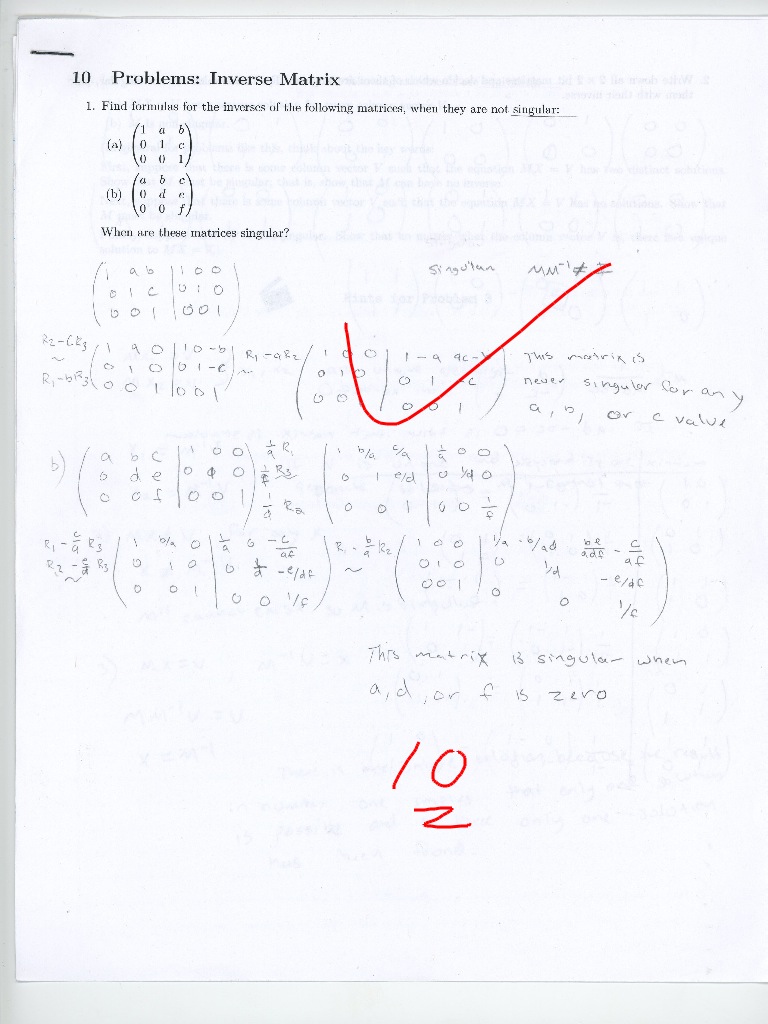 10 Problems: Inverse Matrix
1. Find formulas for the inverses of the following matrices, when they are not singular:
(a) (1 a b
0 1 c
0 0 1)
(b) (a b c
0 d e
0 0 f)
When are these matrices singular?
Singular MM⁻¹ ≠ I
(1 a b | 1 0 0
0 1 c | 0 1 0
0 0 1 | 0 0 1)
R2-CR3
~
R1-bR3
(1 a 0 | 1 0 -b
0 1 0 | 0 1 -c
0 0 1 | 0 0 1)
R1-aR2
~
(1 0 0 | 1 -a ac-b
0 1 0 | 0 1 -c
0 0 | 0 0 1)
This matrix is
never singular for any
a, b, or c value
b) (a b c | 1 0 0
0 d e | 0 0
0 0 f | 0 0 1)
1/a R1
1/f R3
1/d R2
(1 b/a c/a | 1/a 0 0
0 1 e/d | 0 1/d 0
0 0 1 | 0 0 1/f)
R1 - c/a R3
R2 - e/d R3
~
(1 b/a 0 | 1/a 0 -c/af
0 1 0 | 0 1/d -e/df
0 0 1 | 0 0 1/f)
R1 - b/a R2
~
(1 0 0 | 1/a -b/ad be/adf - c/af
0 1 0 | 0 1/d -e/df
0 0 1 | 0 0 1/f)
This matrix is singular when
a, d, or f is zero
10
2